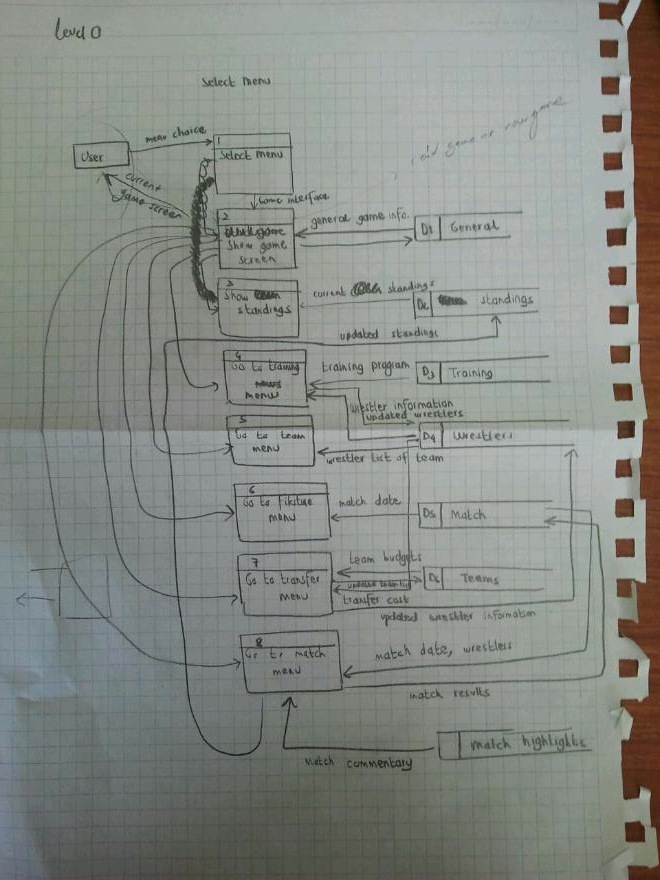 Level 0
Select menu
User
menu choice
1
Select menu
old game or new game
current
game screen
Game interface
2
Show game
screen
general game info.
D1 General
3
Show
standings
current standings
D2 standings
updated standings
4
Go to training
menu
training program
D3 Training
wrestler information
updated wrestlers
5
Go to team
menu
D4 Wrestlers
wrestler list of team
6
Go to fixture
menu
match date
D5 Match
7
Go to transfer
menu
team budgets
D6 Teams
transfer cost
updated wrestler information
8
Go to match
menu
match date, wrestlers
match results
match highlights
match commentary